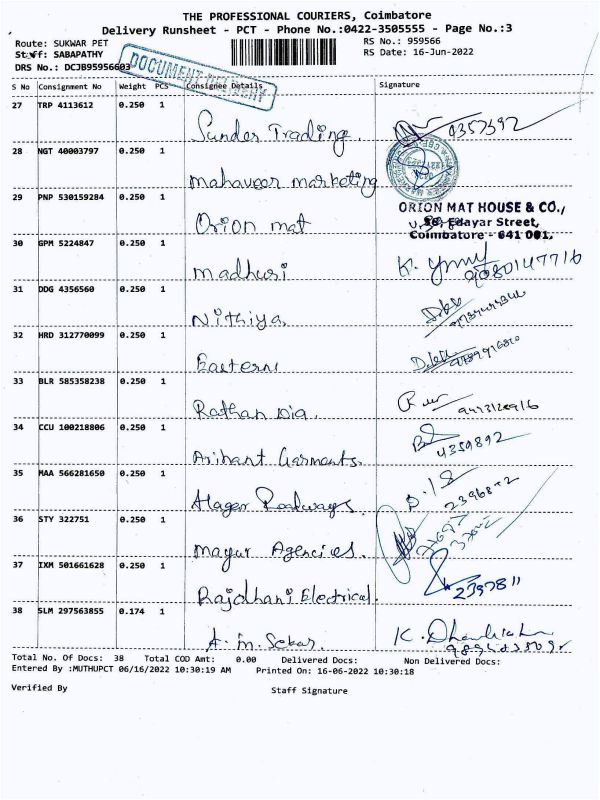 THE PROFESSIONAL COURIERS, Coimbatore
Delivery Runsheet - PCT - Phone No.:0422-3505555 - Page No.:3
Route: SUKWAR PET RS No.: 959566
Staff: SABAPATHY RS Date: 16-Jun-2022
DRS No.: DCJB95956603
DOCUMENT DELIVERY
S No Consignment No Weight PCS Consignee Details Signature
27 TRP 4113612 0.250 1
Sunder Trading. 4357392
28 NGT 40003797 0.250 1
Mahaveer marketing
29 PNP 530159284 0.250 1
ORION MAT HOUSE & CO.,
Orion mat Edayar Street,
Coimbatore - 641 001.
30 GPM 5224847 0.250 1
madhuri K.
31 DDG 4356560 0.250 1
Nithiya
32 HRD 312770099 0.250 1
Eastern
33 BLR 585358238 0.250 1
Rathan Dia.
34 CCU 100218806 0.250 1
Arihant Garments. 4359892
35 MAA 566281650 0.250 1
Alagar Roadways
36 STY 322751 0.250 1
Mayur Agencies.
37 IXM 501661628 0.250 1
Rajdhani Electrical.
38 SLM 297563855 0.174 1
A. m. Sekar. K.
Total No. Of Docs: 38 Total COD Amt: 0.00 Delivered Docs: Non Delivered Docs:
Entered By :MUTHUPCT 06/16/2022 10:30:19 AM Printed On: 16-06-2022 10:30:18
Verified By Staff Signature